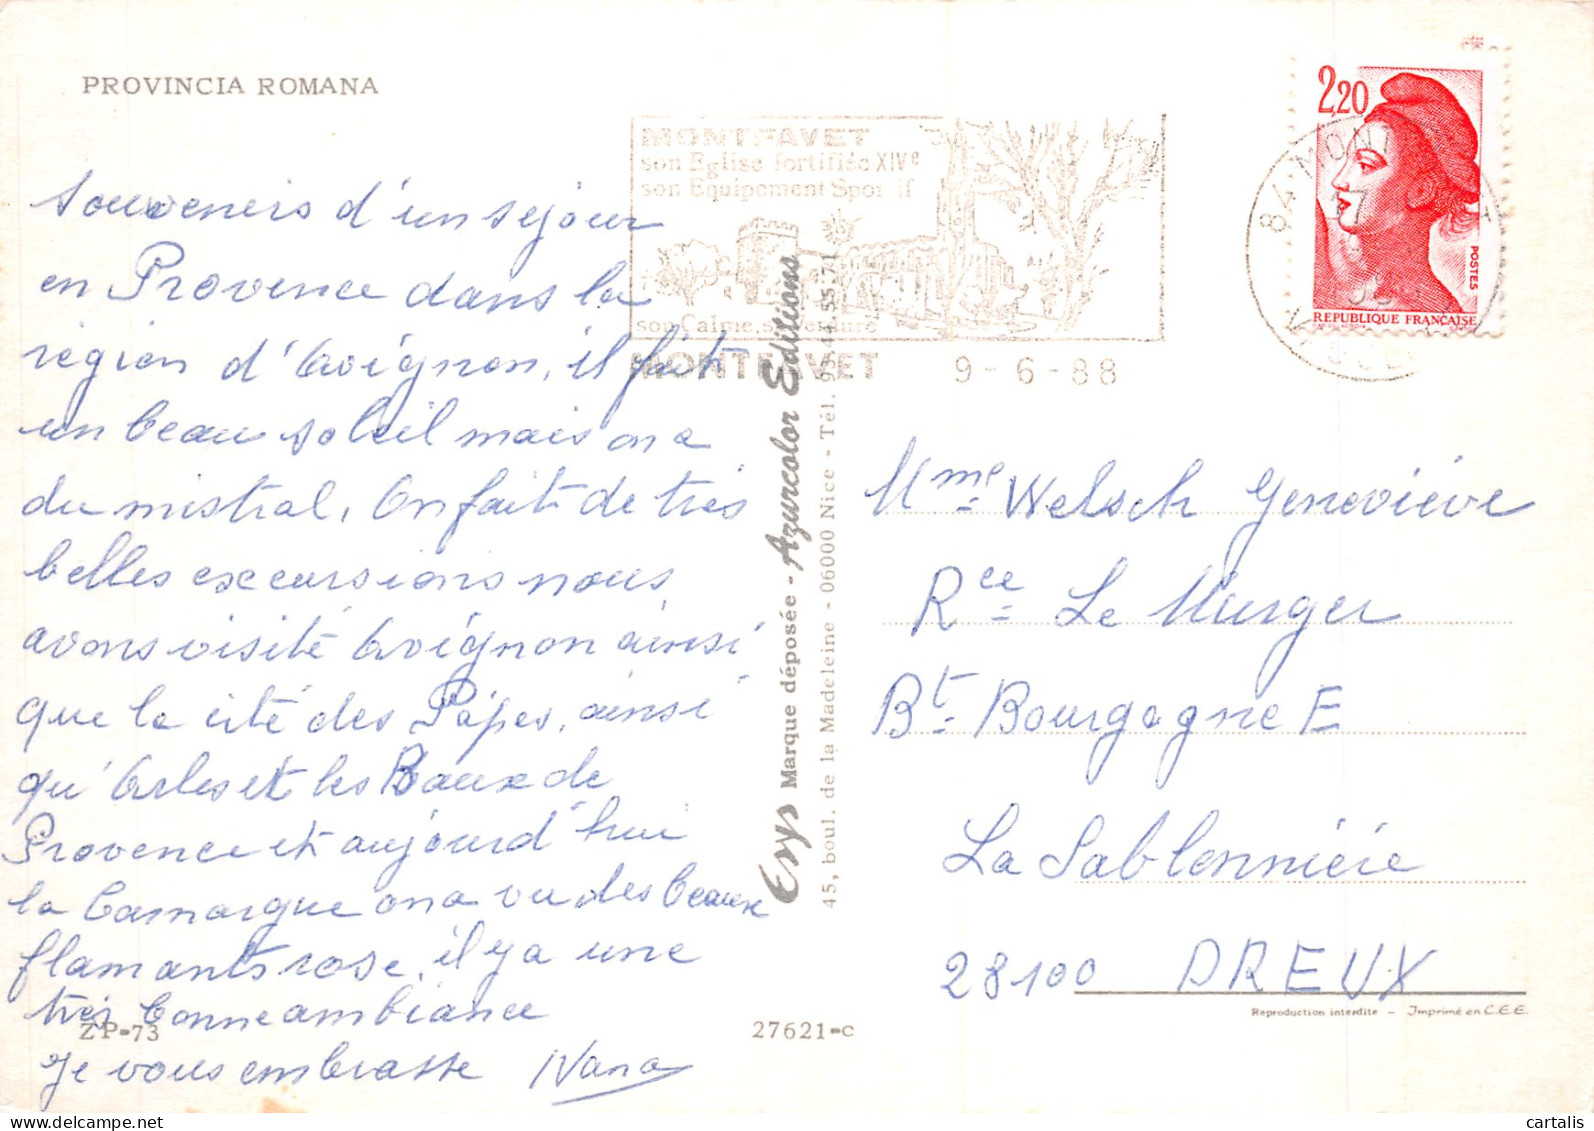 PROVINCIA ROMANA
Souvenirs d'un séjour
en Provence dans la
région d'Avignon, il fait
un beau soleil mais on a
du mistral, On fait de très
belles excursions nous
avons visité Avignon ainsi
que la cité des Papes, ainsi
qu'Arles et les Baux de
Provence et aujourd'hui
la Camargue on a vu des beaux
flamants rose, il y a une
très bonne ambiance
je vous embrasse Nana
ZP-73
27621-c
MONTFAVET
son Eglise fortifiée XIVe
son Equipement Sportif
son Calme, sa Verdure
MONTFAVET 9-6-88
Erys Marque déposée - Azurcolor Editions
45, boul. de la Madeleine - 06000 Nice - Tél. 93.44.55.71
2,20
POSTES
REPUBLIQUE FRANÇAISE
84 MONT
17
Mme Welsch Geneviève
Rce Le Murger
Bt Bourgogne E
La Sablonnière
28100 DREUX
Reproduction interdite - Imprimé en C.E.E.
cartalis